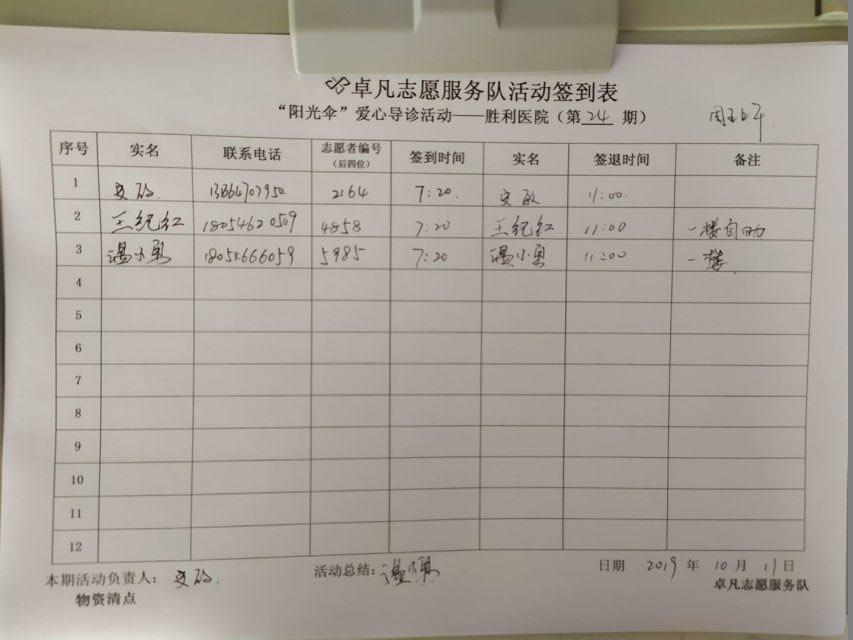 卓凡志愿服务队活动签到表
“阳光伞”爱心导诊活动——胜利医院（第 24 期）
序号 实名 联系电话 志愿者编号（后四位） 签到时间 实名 签退时间 备注
1 2164 7:20. 11:00.
2 王纪红 18054620519 4858 7:20 王纪红 11:00 一楼自助
3 温小勇 18054666059 5985 7:20 温小勇 11:00 一楼
4
5
6
7
8
9
10
11
12
本期活动负责人： 活动总结：温小勇 日期 2019 年 10 月 11 日
物资清点 卓凡志愿服务队